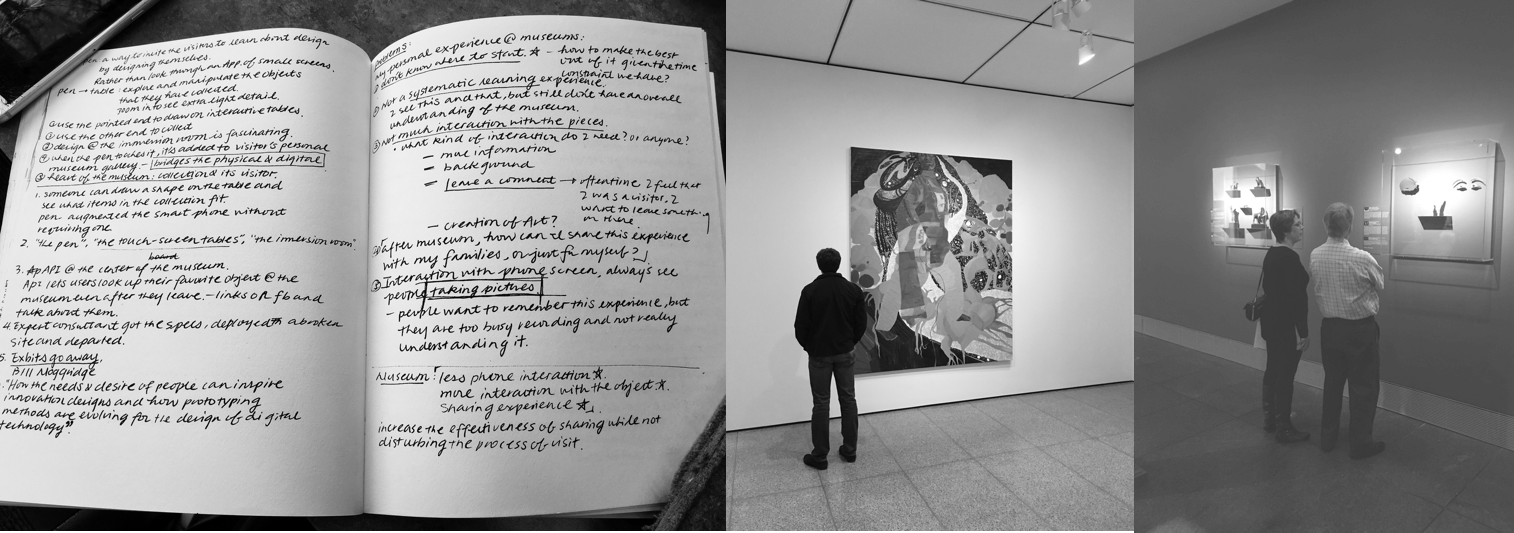 pen: a way to invite the visitors to learn about design
by designing themselves.
Rather than look through an App. of small screens.
pen → table: explore and manipulate the objects
that they have collected.
zoom in to see extra light detail.
① use the pointed end to draw on interactive tables.
② use the other end to collect
③ design @ the immersion room is fascinating.
④ when the pen touches it, it's added to visitor's personal
museum gallery - bridges the physical & digital
⑤ heart of the museum: collection & its visitor.
1. someone can draw a shape on the table and
see what items in the collection fit.
pen augmented the smart phone without
requiring one.
2. "the pen", "the touch-screen tables", "the immersion room"
board
3. API @ the center of the museum.
Api lets users look up their favorite object @ the
museum even after they leave. - links or fb and
talk about them.
4. Expert consultant got the specs, deployed a broken
site and departed.
5. Exbits go away.
Bill Moggridge
"How the needs & desire of people can inspire
innovation designs and how prototyping
methods are evolving for the design of digital
technology"
Problems:
my personal experience @ museums:
① don't know where to start. ☆ - how to make the best
out of it given the time
constraint we have?
② Not a systematic learning experience.
I see this and that, but still don't have an overall
understanding of the museum.
③ Not much interaction with the pieces.
• what kind of interaction do I need? or anyone?
- more information
- background
- leave a comment → oftentime I feel that
I was a visitor. I
want to leave something
on there.
- creation of Art?
④ after museum, how can I share this experience
with my families, or just for myself?
⑤ Interaction with phone screen, always see
people taking pictures
- people want to remember this experience, but
they are too busy recording and not really
understanding it.
Museum: less phone interaction ☆.
more interaction with the object ☆.
Sharing experience ☆.
increase the effectiveness of sharing while not
disturbing the process of visit.